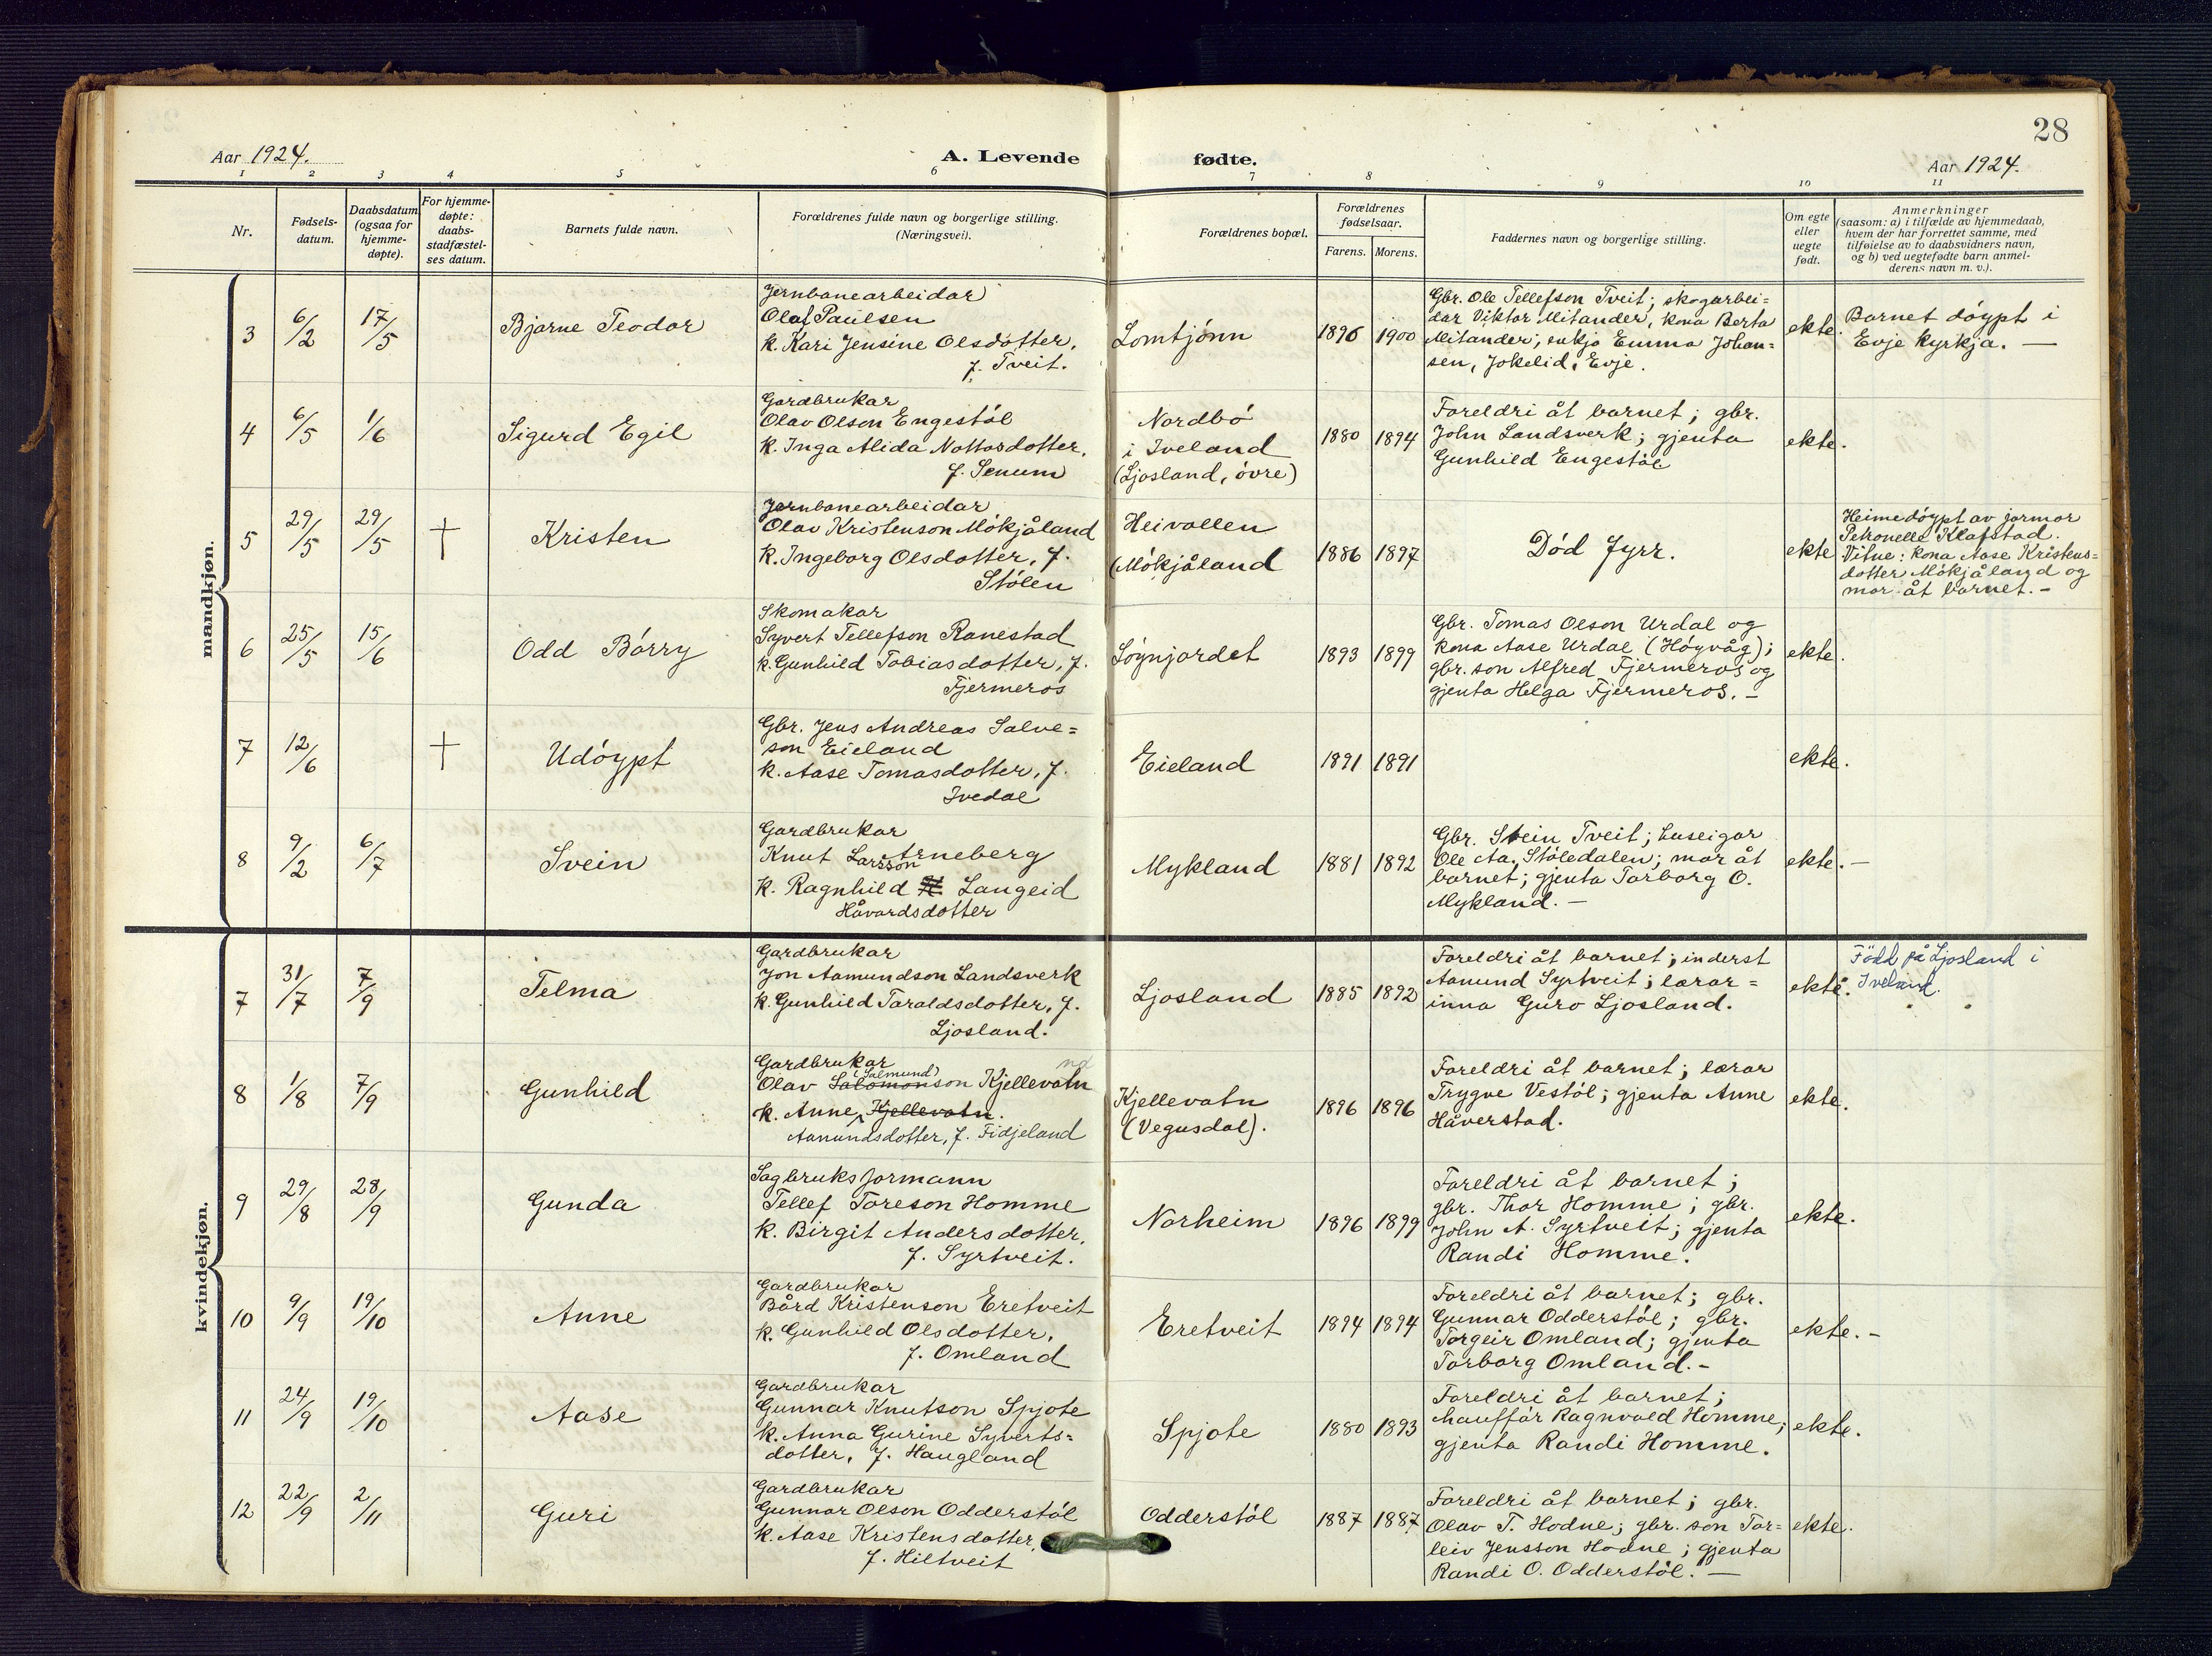 28
Aar 1924.
A. Levende fødte.
Aar 1924.
1 2 3 4 5 6 7 8 9 10 11
Nr.
Fødsels-
datum.
Daabsdatum
(ogsaa for
hjemme-
døpte).
For hjemme-
døpte:
daabs-
stadfæstel-
ses datum.
Barnets fulde navn.
Forældrenes fulde navn og borgerlige stilling.
(Næringsvei).
Forældrenes bopæl.
Forældrenes
fødselsaar.
Farens. Morens.
Faddernes navn og borgerlige stilling.
Om egte
eller
uegte
født.
Anmerkninger
(saasom: a) i tilfælde av hjemmedaab,
hvem der har forrettet samme, med
tilføielse av to daabsvidners navn,
og b) ved uegtefødte barn anmel-
derens navn m. v.).
mandkjøn.
3
6/2
17/5
Bjarne Teodor
Jernbanearbeidar
Olaf Paulsen
k. Kari Jensine Olsdotter,
f. Tveit.
Lomtjønn
1896 1900
Gbr. Ole Tellefson Tveit; skogarbei=
dar Viktor Mitander, kona Berta
Mitander, enkja Emma Johan=
sen, Jokelid, Evje.
ekte.
Barnet døypt i
Evje kyrkja. —
4
6/5
1/6
Sigurd Egil
Gardbrukar
Olav Olson Engestøl
k. Inga Alida Nottosdotter,
f. Senum
Nordbø
i Iveland
(Ljosland, øvre)
1880 1894
Foreldri åt barnet; gbr.
John Landsverk; gjenta
Gunhild Engestøl
ekte.
5
29/5
29/5
†
Kristen
Jernbanearbeidar
Olav Kristenson Møkjåland
k. Ingeborg Olsdotter, f.
Stølen
Heivollen
(Møkjåland
1886 1897
Død fyrr.
ekte
Heimedøypt av jormor
Petronelle Klafstad.
Vitne: kona Aase Kristens=
dotter Møkjåland og
mor åt barnet. —
6
25/5
15/6
Odd Børry
Skomakar
Syvert Tellefson Ranestad
k. Gunhild Tobiasdotter, f.
Fjermeros
Løgnjordet
1893 1899
Gbr. Tomas Olson Urdal og
kona Aase Urdal (Høgvåg);
gbr. son Alfred Fjermeros og
gjenta Helga Fjermeros. —
ekte.
7
12/6
†
Udøypt
Gbr. Jens Andreas Salve=
son Eieland
k. Aase Tomasdotter, f.
Ivedal
Eieland
1891 1891
ekte.
8
9/2
6/7
Svein
Gardbrukar
Knut Larsson Arneberg
k. Ragnhild Langeid
Håvardsdotter
Mykland
1881 1892
Gbr. Stein Tveit; huseigar
Ole Aa. Støledalen; mor åt
barnet; gjenta Torborg O.
Mykland. —
ekte. —
kvindekjøn.
7
31/7
7/9
Telma
Gardbrukar
Jon Aamundson Landsverk
k. Gunhild Taraldsdotter, f.
Ljosland.
Ljosland
1885 1892
Foreldri åt barnet; inderst
Aamund Syrtveit; lærar=
inna Guro Ljosland.
ekte.
Född på Ljosland i
Iveland.
8
1/8
7/9
Gunhild
Gardbrukar
(Salmund)
Olav Salomonson Kjellevatn
k. Anne Kjellevatn.
Aamundsdotter, f. Fidjeland
Kjellevatn
(Vegusdal).
1896 1896
Foreldri åt barnet; lærar
Trygve Vestøl; gjenta Anne
Håverstad.
ekte.
9
29/8
28/9
Gunda
Sagbruksformann
Tellef Toreson Homme
k. Birgit Andersdotter,
f. Syrtveit.
Norheim
1896 1899
Foreldri åt barnet;
gbr. Thor Homme; gbr.
John A. Syrtveit; gjenta
Randi Homme.
ekte.
10
9/9
19/10
Anne
Gardbrukar
Bård Kristenson Eretveit
k. Gunhild Olsdotter,
f. Omland
Eretveit
1894 1894
Foreldri åt barnet; gbr.
Gunnar Odderstøl; gbr.
Torgeir Omland; gjenta
Torborg Omland. —
ekte. —
11
24/9
19/10
Aase
Gardbrukar
Gunnar Knutson Spjote
k. Anna Gurine Syverts=
dotter, f. Haugland
Spjote
1880 1893
Foreldri åt barnet;
chauffør Ragnvald Homme;
gjenta Randi Homme.
ekte.
12
22/9
2/11
Guri
Gardbrukar
Gunnar Olson Odderstøl
k. Aase Kristensdotter,
f. Hiltveit
Odderstøl
1887 1887
Foreldri åt barnet; gbr.
Olav T. Hodne; gbr. son Tor=
leiv Jensson Hodne; gjenta
Randi O. Odderstøl. —
ekte.